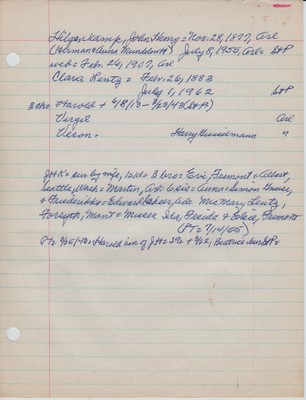 Hilgenkamp, John Henry = Nov. 28, 1877, Arl
(Herman & Anna Munddorth) July 8, 1955, Arl = S+P
wed = Feb. 26, 1907, Arl
Clara Lentz = Feb. 26, 1883
July 1, 1962 S+P
3 ch = Harold + 4/8/13 - 9/23/43 (S+P)
Virgil Arl
Veron = Harry Giesselmann "
JHK = sur by wife, 1s1d = 3 bro = Evi, Fremont = Albert,
Seattle, Wash = Martin, Arl = sis = Anna = Simon
& Fredericka = Edward, Arl = Mrs Mary Lentz,
Forsyth, Mont = Misses Ida, Freida & Elsie, Fremont
(PT = 7/14/55)
PT = 9/25/43 = Harold son of JH = 29 + 9/22, Beatrice S+P =